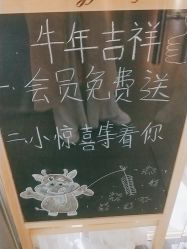 牛年吉祥
一.会员免费送
二.小惊喜等着你